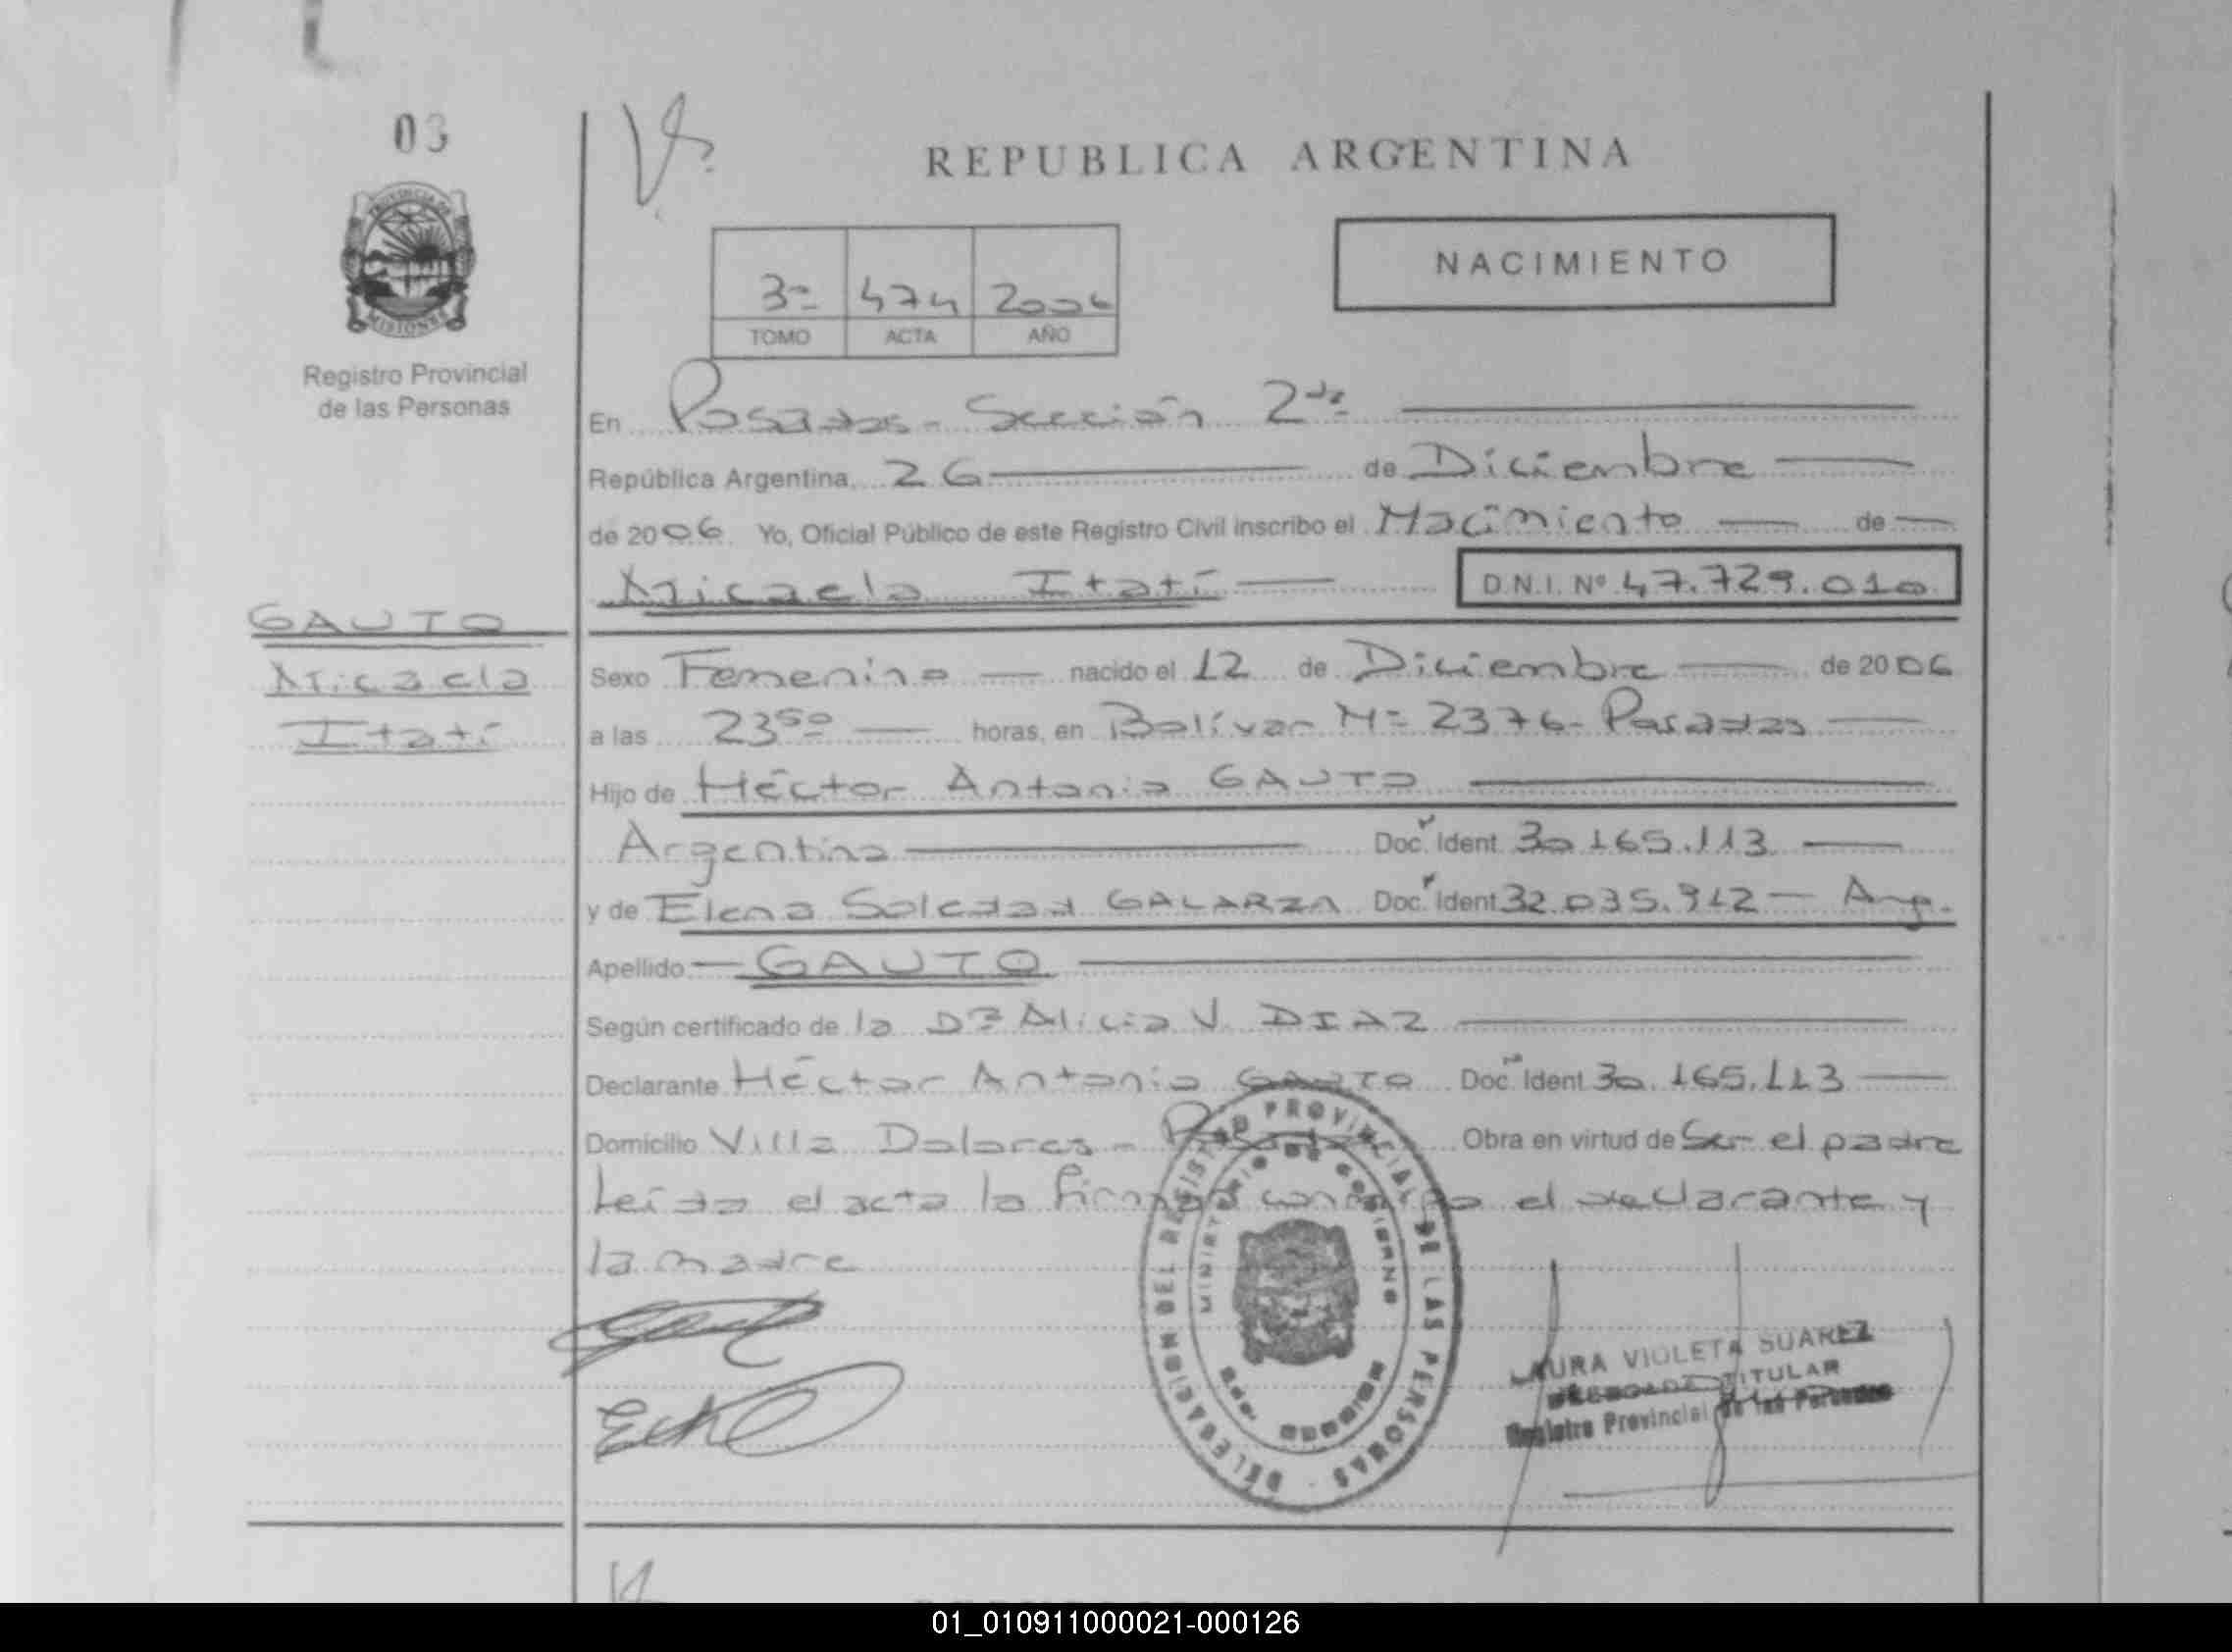 03
PROVINCIA DE
MISIONES
Registro Provincial
de las Personas
GAUTO
Micaela
Itatí
REPUBLICA ARGENTINA
NACIMIENTO
3º 474 2006
TOMO ACTA AÑO
En Posadas - Sección 2da
República Argentina, 26 de Diciembre
de 2006 Yo, Oficial Público de este Registro Civil inscribo el Nacimiento de
Micaela Itatí D.N.I. Nº 47.729.010
Sexo Femenino nacido el 12 de Diciembre de 2006
a las 23 50 horas, en Bolívar Nº 2376 - Posadas
Hijo de Héctor Antonio GAUTO
Argentino Doc. Ident 30.165.113
y de Elena Soledad GALARZA Doc. Ident 32.035.912 - Arg.
Apellido GAUTO
Según certificado de la Dra Alicia V. DIAZ
Declarante Héctor Antonio GAUTO Doc. Ident 30.165.113
Domicilio Villa Dolores - Posadas Obra en virtud de Ser el padre
Leída el acta la firman conmigo el declarante y
la madre
DELEGACION DEL REGISTRO PROVINCIAL DE LAS PERSONAS
MINISTERIO DE GOBIERNO
MISIONES
LAURA VIOLETA SUAREZ
DELEGADA TITULAR
Registro Provincial de las Personas
01_010911000021-000126